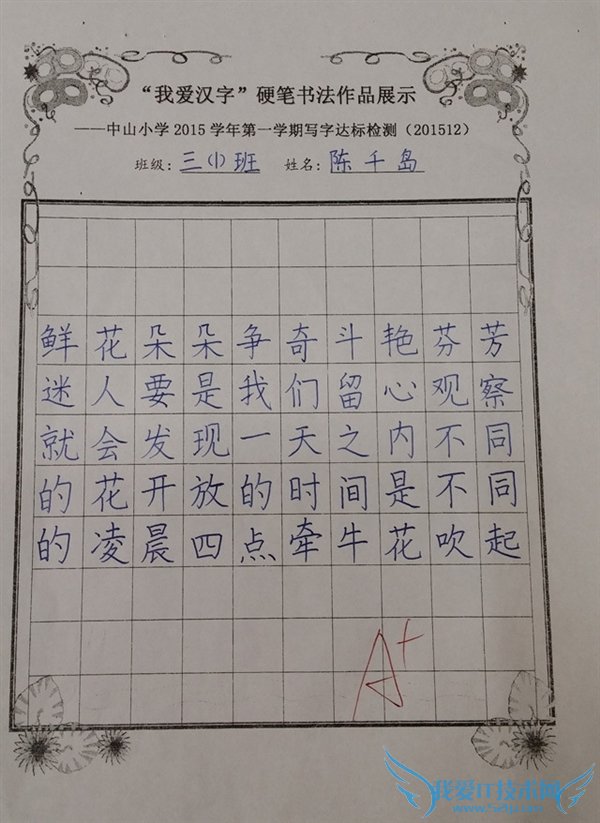 “我爱汉字”硬笔书法作品展示
——中山小学2015学年第一学期写字达标检测（201512）
班级：三(1)班 姓名：陈千岛
鲜花朵朵争奇斗艳芬芳
迷人要是我们留心观察
就会发现一天之内不同
的花开放的时间是不同
的凌晨四点牵牛花吹起
A+
我爱IT技术网